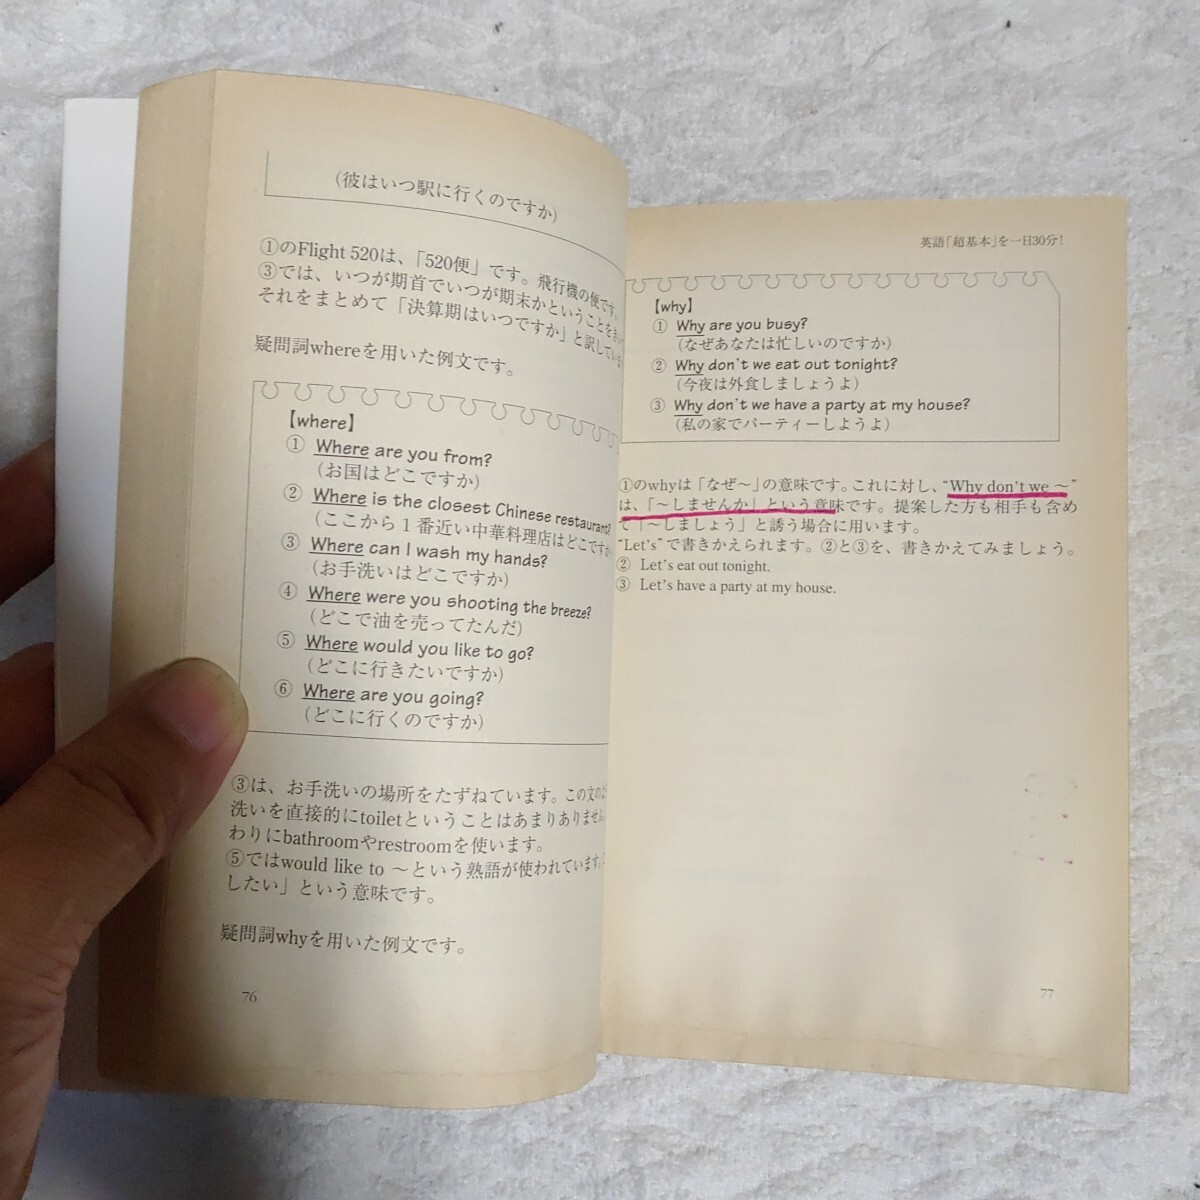 (彼はいつ駅に行くのですか)
①のFlight 520は、「520便」です。飛行機の便です。
③では、いつが期首でいつが期末かということをきい
それをまとめて「決算期はいつですか」と訳してい
疑問詞whereを用いた例文です。
【where】
① Where are you from?
(お国はどこですか)
② Where is the closest Chinese restaurant?
(ここから1番近い中華料理店はどこですか
③ Where can I wash my hands?
(お手洗いはどこですか)
④ Where were you shooting the breeze?
(どこで油を売ってたんだ)
⑤ Where would you like to go?
(どこに行きたいですか)
⑥ Where are you going?
(どこに行くのですか)
③は、お手洗いの場所をたずねています。この文の
洗いを直接的にtoiletということはあまりありません
わりにbathroomやrestroomを使います。
⑤ではwould like to ～という熟語が使われています。
したい」という意味です。
疑問詞whyを用いた例文です。
76
英語「超基本」を一日30分!
【why】
① Why are you busy?
(なぜあなたは忙しいのですか)
② Why don't we eat out tonight?
(今夜は外食しましょうよ)
③ Why don't we have a party at my house?
(私の家でパーティーしようよ)
①のwhyは「なぜ～」の意味です。これに対し、“Why don't we ～”
は、「～しませんか」という意味です。提案した方も相手も含め
て「～しましょう」と誘う場合に用います。
“Let's”で書きかえられます。②と③を、書きかえてみましょう。
② Let's eat out tonight.
③ Let's have a party at my house.
77